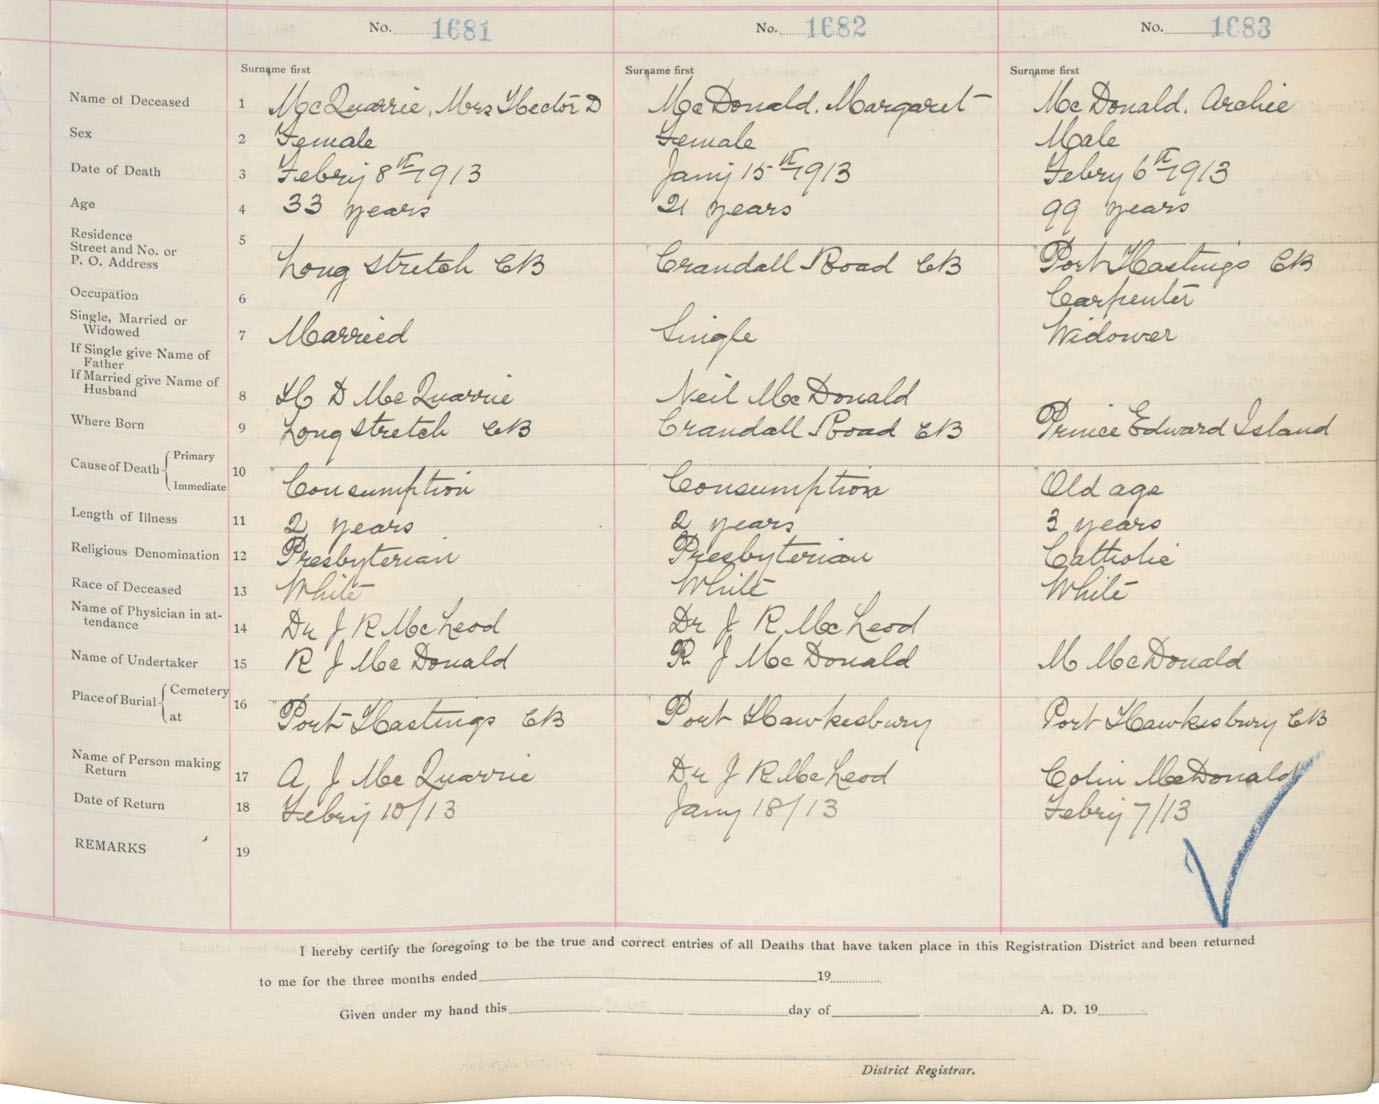 No. 1681 No. 1682 No. 1683
Surname first Surname first Surname first
Name of Deceased 1 McQuarrie, Mrs Hector D McDonald. Margaret McDonald. Archie
Sex 2 Female Female Male
Date of Death 3 Febry 8th 1913 Jany 15th 1913 Febry 6th 1913
Age 4 33 years 21 years 99 years
Residence
Street and No. or
P. O. Address 5 Long Stretch CB Crandall Road CB Port Hastings CB
Occupation 6 Carpenter
Single, Married or
Widowed 7 Married Single Widower
If Single give Name of
Father
If Married give Name of
Husband 8 H D McQuarrie Neil McDonald
Where Born 9 Long Stretch CB Crandall Road CB Prince Edward Island
Cause of Death { Primary
Immediate 10 Consumption Consumption Old age
Length of Illness 11 2 years 2 years 3 years
Religious Denomination 12 Presbyterian Presbyterian Catholic
Race of Deceased 13 White White White
Name of Physician in at-
tendance 14 Dr J R McLeod Dr J R McLeod
Name of Undertaker 15 R J McDonald R J McDonald M McDonald
Place of Burial { Cemetery
at 16 Port Hastings CB Port Hawkesbury Port Hawkesbury CB
Name of Person making
Return 17 A J McQuarrie Dr J R McLeod Colin McDonald
Date of Return 18 Febry 10/13 Jany 18/13 Febry 7/13
REMARKS 19
I hereby certify the foregoing to be the true and correct entries of all Deaths that have taken place in this Registration District and been returned
to me for the three months ended 19
Given under my hand this day of A. D. 19
District Registrar.